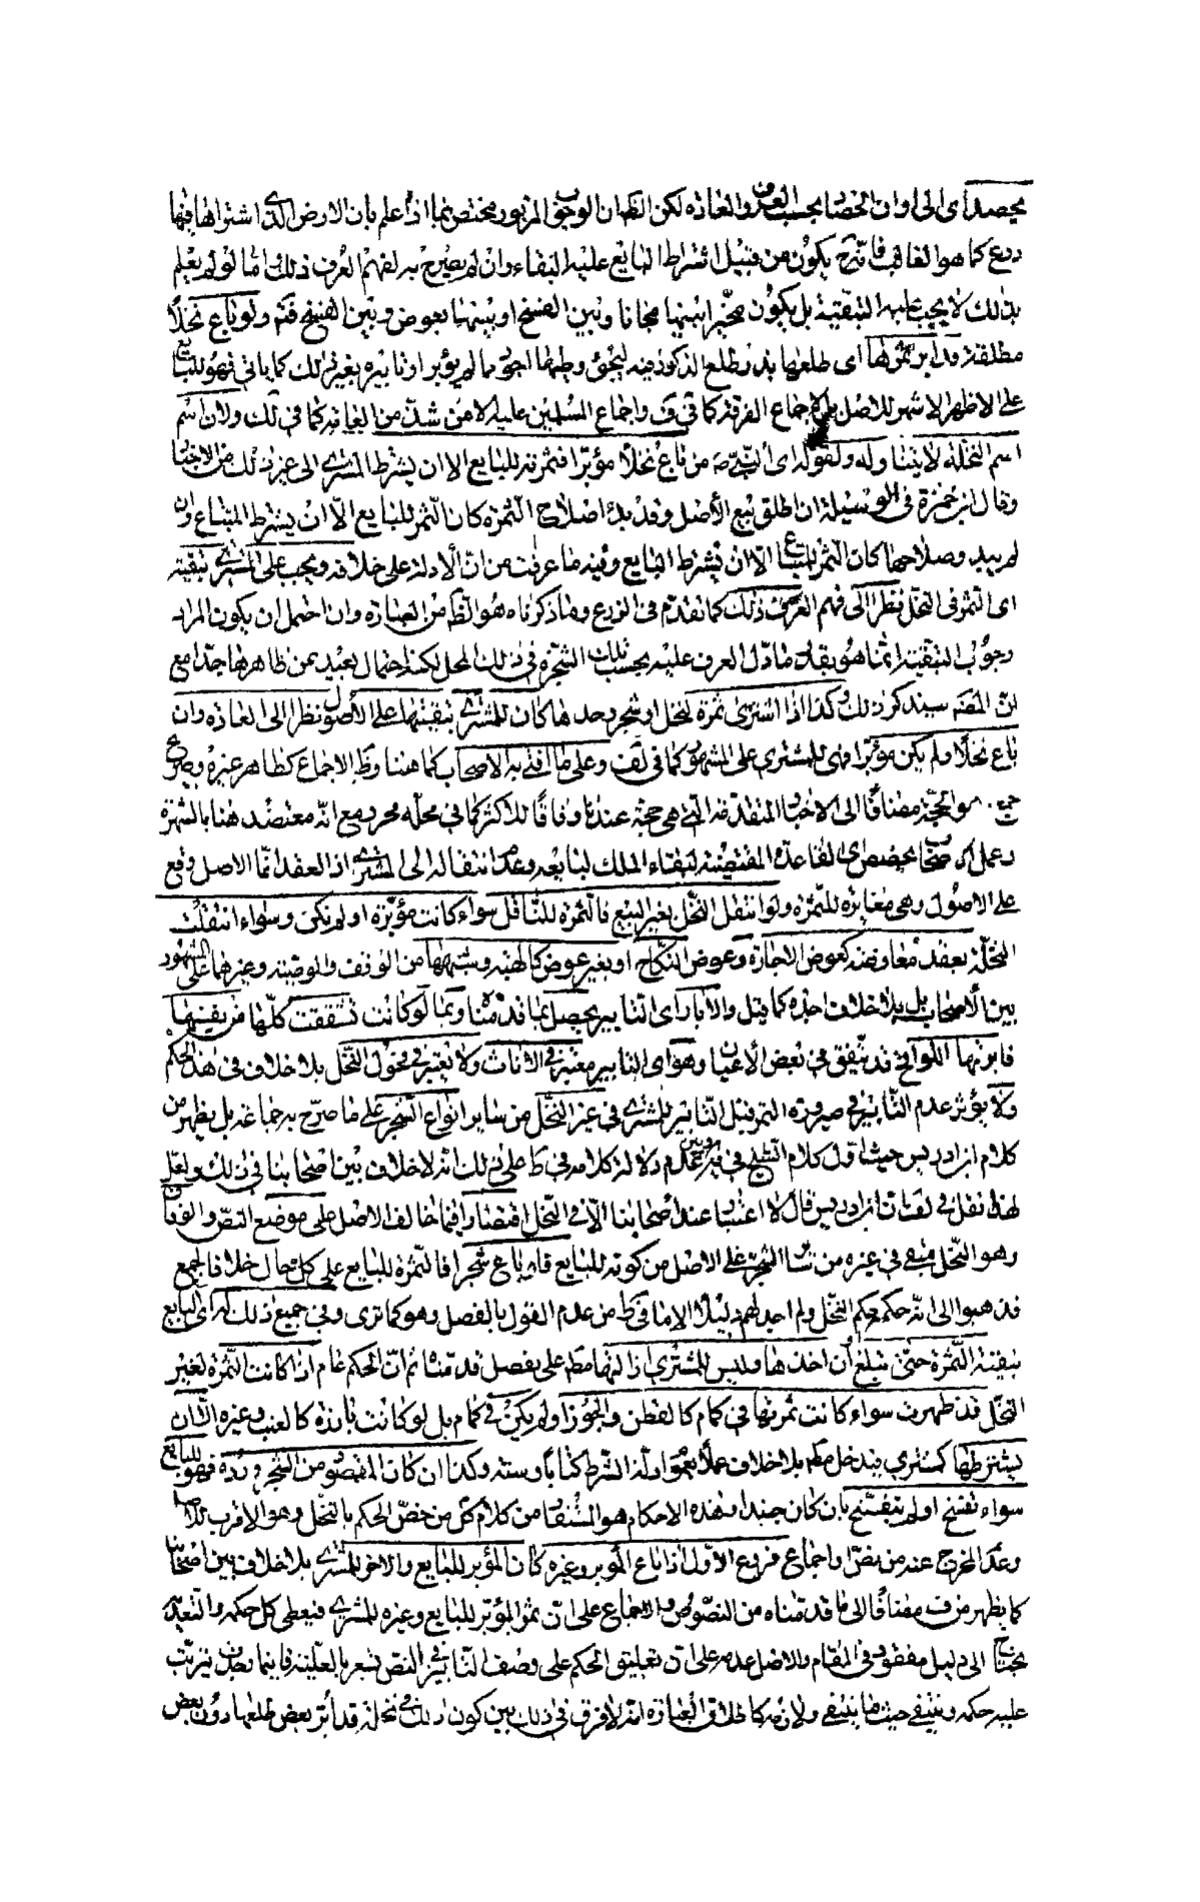 يحصد اى الى اوان الحصاد بحسب العرف والعادة لكن الظ ان الوجوب المزبور مختص بما اذا علم بان الارض الذى اشتراها فيها
زرع كما هو الغالب فانه ح يكون من قبيل اشتراط البايع عليه البقاء وان لم يصرح به لفهم العرف ذلك واما لو لم يعلم
بذلك لا يجب عليه التبقية بل يكون مخيرا بينها مجانا وبين الفسخ او بينها بعوض وبين الفسخ فتم ولو باع نخلا
مطلقة قد ابر ثمرتها اى طلعها بذر طلع الذكور فيه ليجئ رطبها اجود مما لم يؤبر او تابيره بغير ذلك كما ياتى فهو للبايع
على الاظهر الاشهر للاصل واجماع الفرقة كما فى ف واجماع المسلمين عليه الا من شذ من العامة كما فى لك ولان اسم
اسم النخلة لا يتناوله ولقوله اى النبى ص من باع نخلا مؤبرا فثمرته للبايع الا ان يشترط المشترى الى غير ذلك من الاخبار
وقال ابن حمزة فى الوسيلة ان اطلق بيع الأصل وقد بدا صلاح الثمرة كان الثمر للبايع الا ان يشترط المبتاع وان
لم يبد وصلاحها كان الثمر للمبتاع الا ان يشترط البايع وفيه ما عرفت من ان الادلة على خلافه ويجب على المشترى تبقيته
اى الثمر فى النخل نظرا الى فهم العرف ذلك كما تقدم فى الزرع وما ذكرناه هو الظ من العبارة وان احتمل ان يكون المراد
وجوب التبقية انما هو بقدر ما دل العرف عليه بحسب تلك الشجرة فى ذلك المحل لكنه احتمال بعيد من ظاهرها جدا مع
ان المصنف سيذكر ذلك وكذا اذا اشترى ثمرة نخل او شجر وحدها كان للمشترى تبقيتها على الأصول نظرا الى العادة وان
باع نخلا ولم يكن مؤبرا فهى للمشترى على المشهور كما فى لف وعلى ما افتى به الاصحاب كما هنا وظ الاجماع كظاهر غيره وصريح
هو الحجة مضافا الى الاخبار المتقدمة التى هى حجة عندنا وفاقا للاكثر كما فى محله محرر مع انه معتضد هنا بالشهرة
وعمل الاصحاب يخصص اى القاعدة المقتضية لبقاء الملك لبايعه وعدم انتقاله الى المشترى اذ العقد انما الاصل وقع
على الاصول وهى مغايرة للثمرة ولو انتقل النخل بغير البيع فالثمرة للناقل سواء كانت مؤبرة او لم تكن وسواء انتقلت
النخلة بعقد معاوضة كعوض الاجارة وعوض النكاح او بغير عوض كالهبة وشبهها من الوقف والوصية وغيرهما على المشهور
بين الأصحاب بل بلا خلاف اجده كما قيل والابار اى التابير يحصل بما قدمناه وبما لو كانت تشققت كلها من نفسها
فابرتها اللواقح قد يتفق فى بعض الأعيان وهو اى التابير معتبر فى الاناث ولا يعتبر فى فحول النخل بلا خلاف فى هذا الحكم
ولا يؤثر عدم التابير فى صيرورة الثمر قبل التابير للمشترى فى غير النخل من ساير انواع الشجر على ما صرح به جماعة بل يظهر من
كلام ابن ادريس حيث اول كلام الشيخ فى عدم دلالة كلامه فى ط على ذلك انه لا خلاف بين اصحابنا فى ذلك ولعل
لهذا نقل فى لف ان ابن ادريس قال لا اعتبار عند أصحابنا الا فى النخل اقتصارا فيما خالف الاصل على موضع النص والوفاق
وهو النخل فبقى فى غيره من الشجر على الاصل من كونه للبايع فلو باع شجرا فالثمرة للبايع على كل حال خلافا لجمع
فذهبوا الى انه حكمه حكم النخل ولم اجد لهم دليلا الا ما فى ط من عدم القول بالفصل وهو كما ترى وفى جميع ذلك له اى البايع
تبقية الثمرة حتى تبلغ أوان اخذها وليس للمشترى ازالتها مط على تفصيل قدمناه ثم ان الحكم عام اذا كانت الثمرة لغير
النخل قد ظهرت سواء كانت ثمرتها فى كمام كالقطن والجوز او لم يكن فى كمام بل لو كانت بارزة كالعنب وغيره الا ان
يشترطها المشترى فيدخل مط بلا خلاف عملا بعموم ادلة الشرط كتابا وسنة وكذا ان كان المقصود من الشجر ورده فهو للبايع
سواء تفتح او لم يتفتح بان كان جنبذا وهذه الاحكام هو المستفاد من كلام كل من خص الحكم بالنخل وهو الاقرب للاصل
وعدم المخرج عنه من نص او اجماع فروع الاول اذا باع المؤبر وغيره كان المؤبر للبايع والاخر للمشترى بلا خلاف بين اصحابنا
كما يظهر من ف مضافا الى ما قدمناه من النصوص والاجماع على ان ثمر المؤبر للبايع وغيره للمشترى فيعطى كل حكمه والتعدية
يحتاج الى دليل مفقود فى المقام والاصل عدمه على ان تعليق الحكم على وصف التابير فى النص يشعر بالعلية فاينما وجدت يترتب
عليه حكمه وينتفى حيث ما ينتفى ولازمه كاطلاق العبارة انه لا فرق فى ذلك بين كون ذلك فى نخلة قد ابر بعض طلعها دون بعض